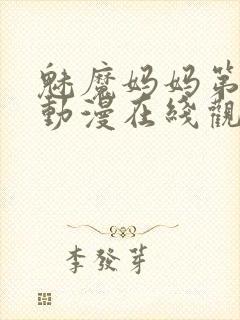 魅魔妈妈第
動漫在綫觀
李發芽